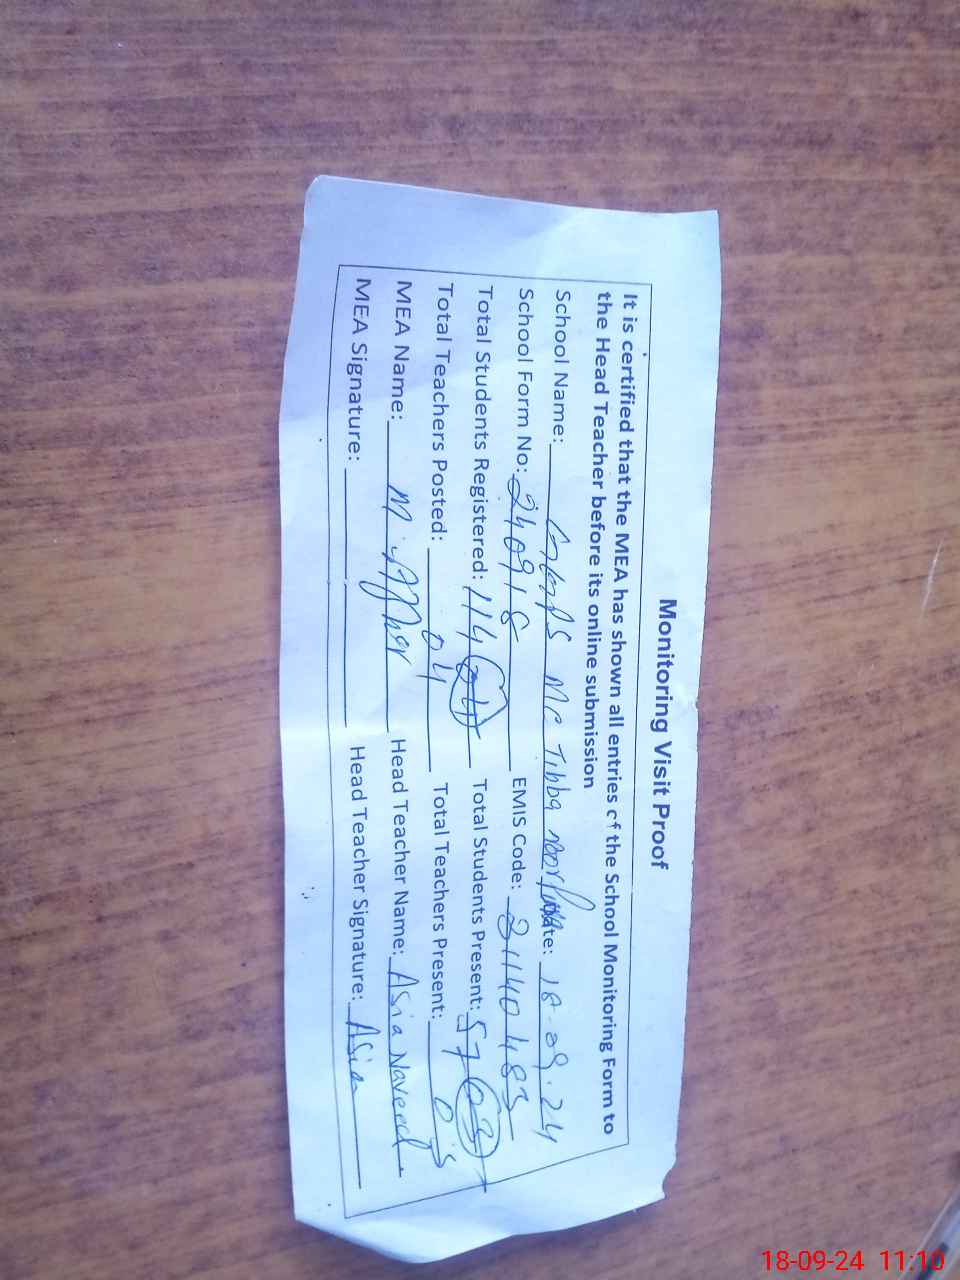 Monitoring Visit Proof
It is certified that the MEA has shown all entries of the School Monitoring Form to
the Head Teacher before its online submission
School Name: MC Tibba Date: 18-09-24
School Form No: 240918 EMIS Code: 31140483
Total Students Registered: 114 (04) Total Students Present: 57 (03)
Total Teachers Posted: 04 Total Teachers Present:
MEA Name: M. Head Teacher Name: Asia Naveed
MEA Signature: Head Teacher Signature: Asia
18-09-24 11:10